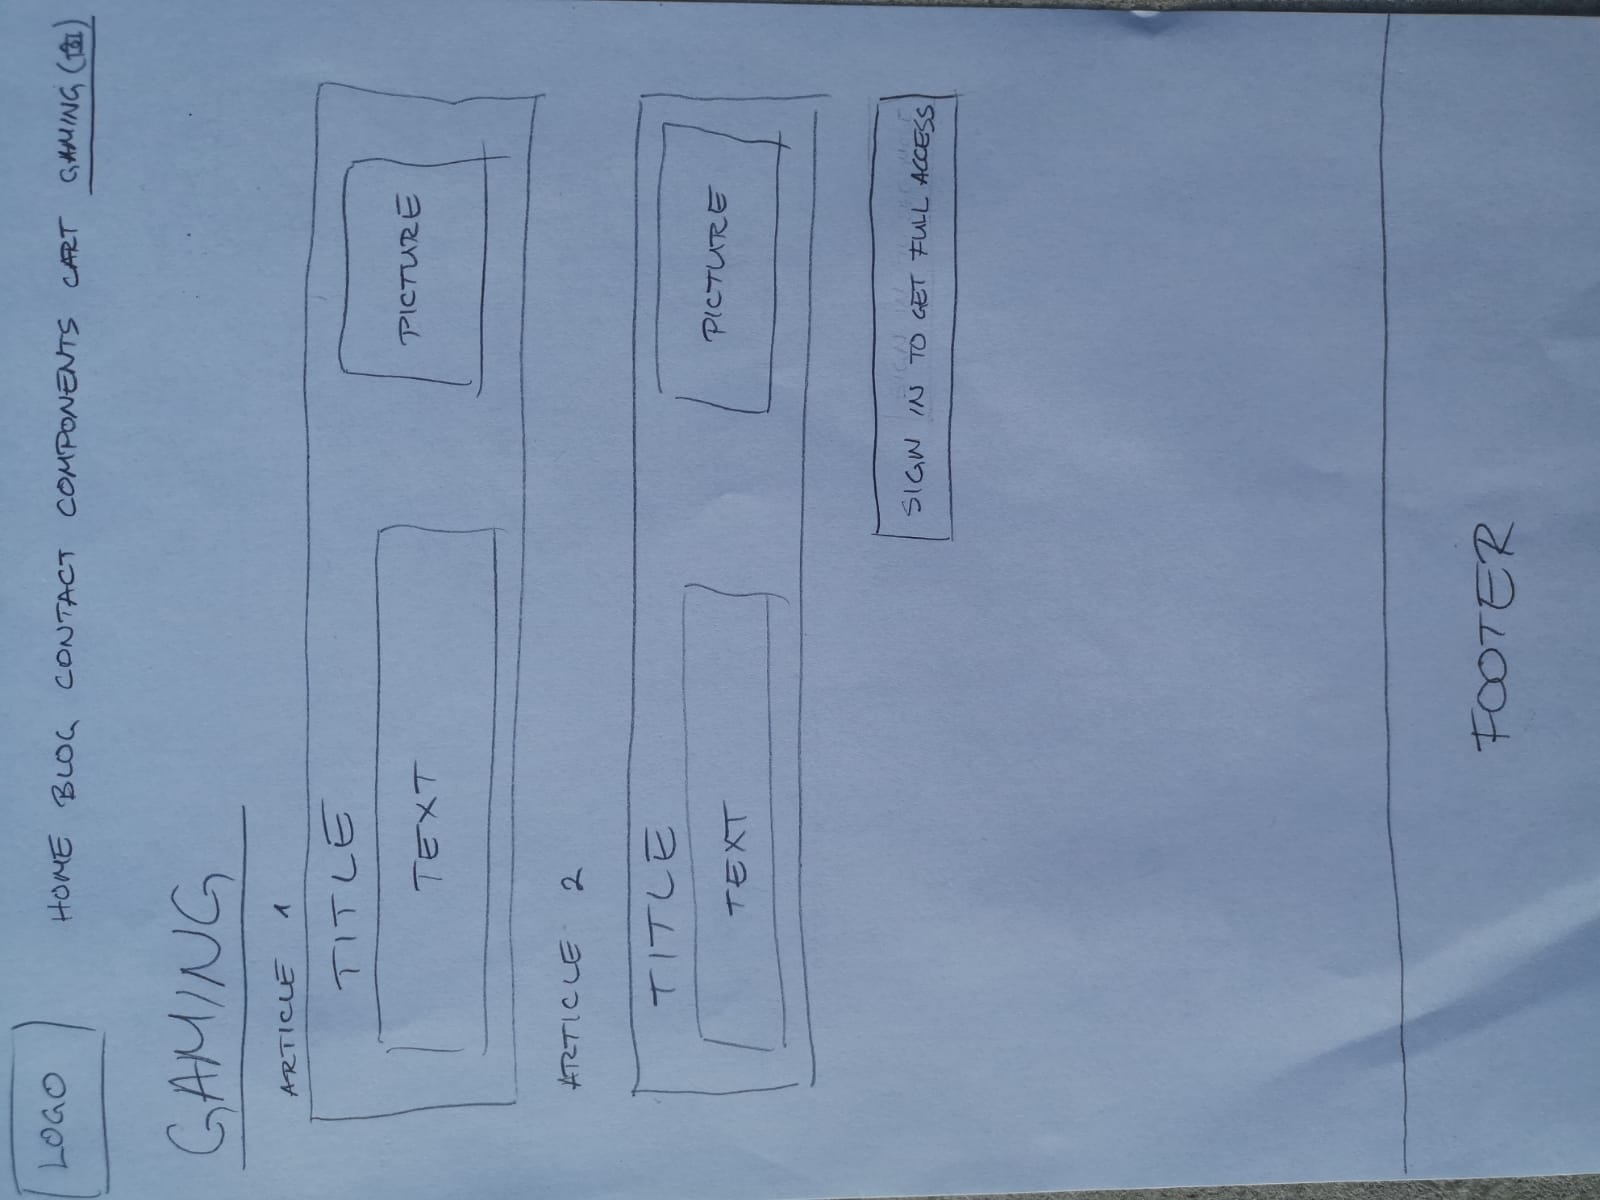 LOGO
HOME BLOG CONTACT COMPONENTS CART GAMING
GAMING
ARTICLE 1
TITLE
TEXT
PICTURE
ARTICLE 2
TITLE
TEXT
PICTURE
SIGN IN TO GET FULL ACCESS
FOOTER